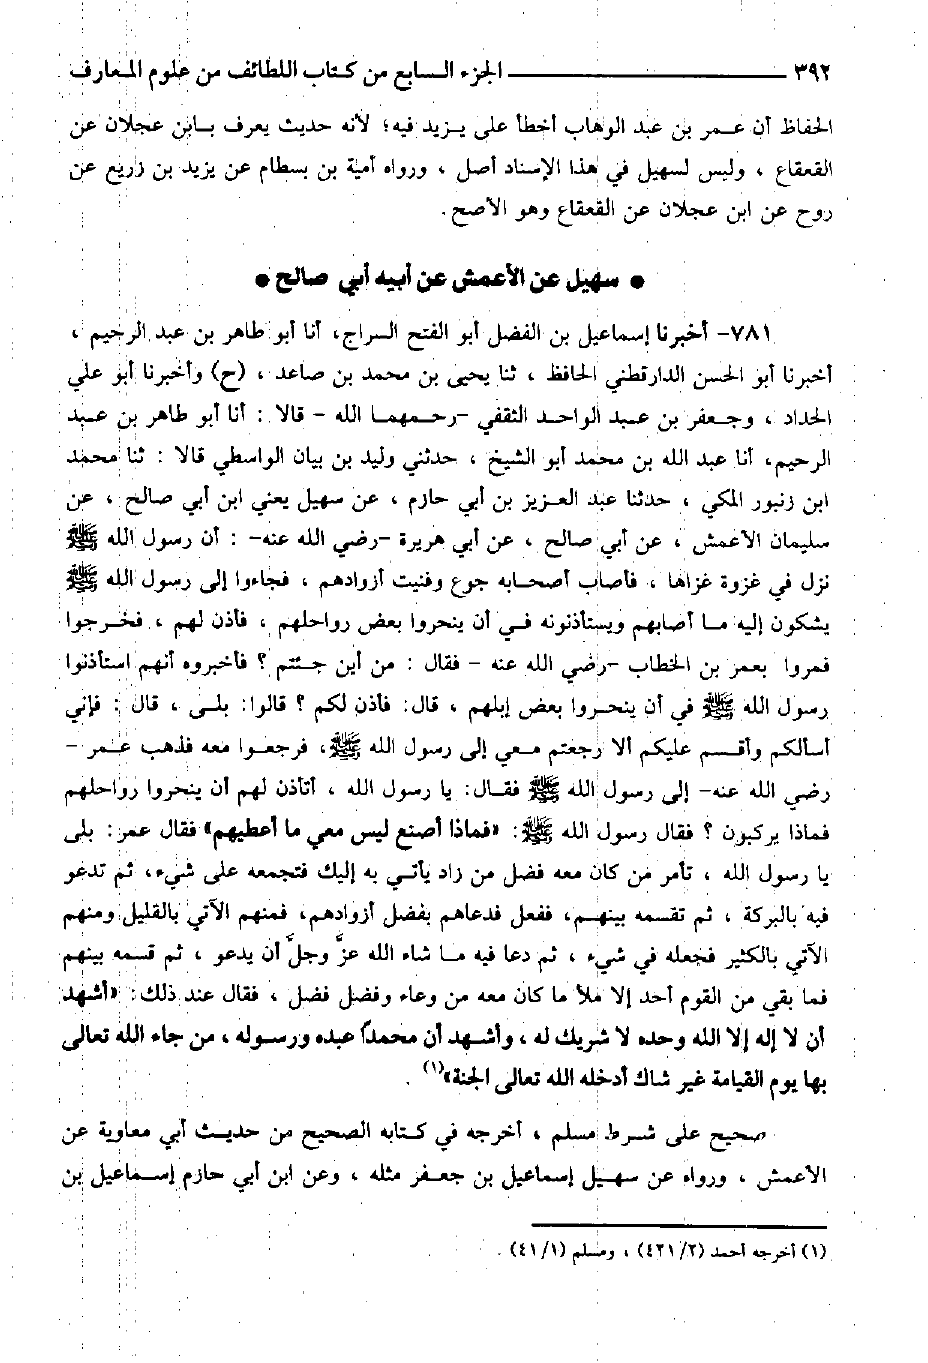 ٣٩٢ الجزء السابع من كتاب اللطائف من علوم المعارف
الحفاظ أن عمر بن عبد الوهاب أخطأ على يزيد فيه؛ لأنه حديث يعرف بابن عجلان عن
القعقاع ، وليس لسهيل في هذا الإسناد أصل ، ورواه أمية بن بسطام عن يزيد بن زريع عن
روح عن ابن عجلان عن القعقاع وهو الأصح.
● سهيل عن الأعمش عن أبيه أبي صالح ●
٧٨١- أخبرنا إسماعيل بن الفضل أبو الفتح السراج، أنا أبو طاهر بن عبد الرحيم ،
أخبرنا أبو الحسن الدارقطني الحافظ ، ثنا يحيى بن محمد بن صاعد ، (ح) وأخبرنا أبو علي
الحداد ، وجعفر بن عبد الواحد الثقفي -رحمهما الله - قالا : أنا أبو طاهر بن عبد
الرحيم، أنا عبد الله بن محمد أبو الشيخ ، حدثني وليد بن بيان الواسطي قالا : ثنا محمد
ابن زنبور المكي ، حدثنا عبد العزيز بن أبي حازم ، عن سهيل يعني ابن أبي صالح ، عن
سليمان الأعمش ، عن أبي صالح ، عن أبي هريرة -رضي الله عنه- : أن رسول الله ﷺ
نزل في غزوة غزاها ، فأصاب أصحابه جوع وفنيت أزوادهم ، فجاءوا إلى رسول الله ﷺ
يشكون إليه ما أصابهم ويستأذنونه في أن ينحروا بعض رواحلهم ، فأذن لهم ، فخرجوا
فمروا بعمر بن الخطاب -رضي الله عنه - فقال : من أين جئتم ؟ فأخبروه أنهم استأذنوا
رسول الله ﷺ في أن ينحروا بعض إبلهم ، قال: فأذن لكم ؟ قالوا: بلى ، قال : فإني
أسألكم وأقسم عليكم ألا رجعتم معي إلى رسول الله ﷺ، فرجعوا معه فذهب عمر -
رضي الله عنه- إلى رسول الله ﷺ فقال: يا رسول الله ، أتأذن لهم أن ينحروا رواحلهم
فماذا يركبون ؟ فقال رسول الله ﷺ: «فماذا أصنع ليس معي ما أعطيهم» فقال عمر: بلى
يا رسول الله ، تأمر من كان معه فضل من زاد يأتي به إليك فتجمعه على شيء، ثم تدعو
فيه بالبركة ، ثم تقسمه بينهم، ففعل فدعاهم بفضل أزوادهم، فمنهم الآتي بالقليل ومنهم
الآتي بالكثير فجعله في شيء ، ثم دعا فيه ما شاء الله عزَّ وجلَّ أن يدعو ، ثم قسمه بينهم
فما بقي من القوم أحد إلا ملأ ما كان معه من وعاء وفضل فضل ، فقال عند ذلك: «أشهد
أن لا إله إلا الله وحده لا شريك له ، وأشهد أن محمداً عبده ورسوله ، من جاء الله تعالى
بها يوم القيامة غير شاك أدخله الله تعالى الجنة»(١) .
صحيح على شرط مسلم ، أخرجه في كتابه الصحيح من حديث أبي معاوية عن
الأعمش ، ورواه عن سهيل إسماعيل بن جعفر مثله ، وعن ابن أبي حازم إسماعيل بن
(١) أخرجه أحمد (٤٢١/٢) ، ومسلم (٤١/١) .